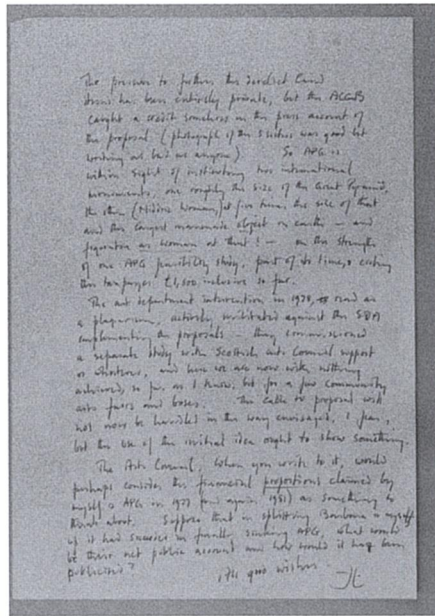 The pressure to further the derelict land
items has been entirely private, but the ACGB
caught a credit somehow in the press account of
the proposal. (photograph of the 5 sisters was good but
working on behalf anyone) So APG is
within sight of instituting two international
monuments, one roughly the size of the Great Pyramid,
the other (Niddrie Woman) at five times the size of that
and the largest manmade object on earth - and
figurative as woman at that! - on the strength
of one APG feasibility study, part of its time, costing
the taxpayer £1,500 inclusive so far.
The art department intervention in 1978, read as
a plagiarism, actively militated against the SDA
implementing the proposals - they commissioned
a separate study with Scottish Arts Council support
or whatever, and here we are now with nothing
achieved, so far as I know, but for a few community
arts faces and bases. The cable or proposal will
not now be handled in the way envisaged, I fear,
but the use of the initial idea ought to show something.
The Arts Council, when you write to it, would
perhaps consider the financial proportions claimed by
myself & APG in 1977 (and again 1981) as something to
think about. Suppose that in splitting Barbara & myself
up it had success in finally sinking APG, what would
be their net public account and how would it have been
publicised?
All good wishes
JL